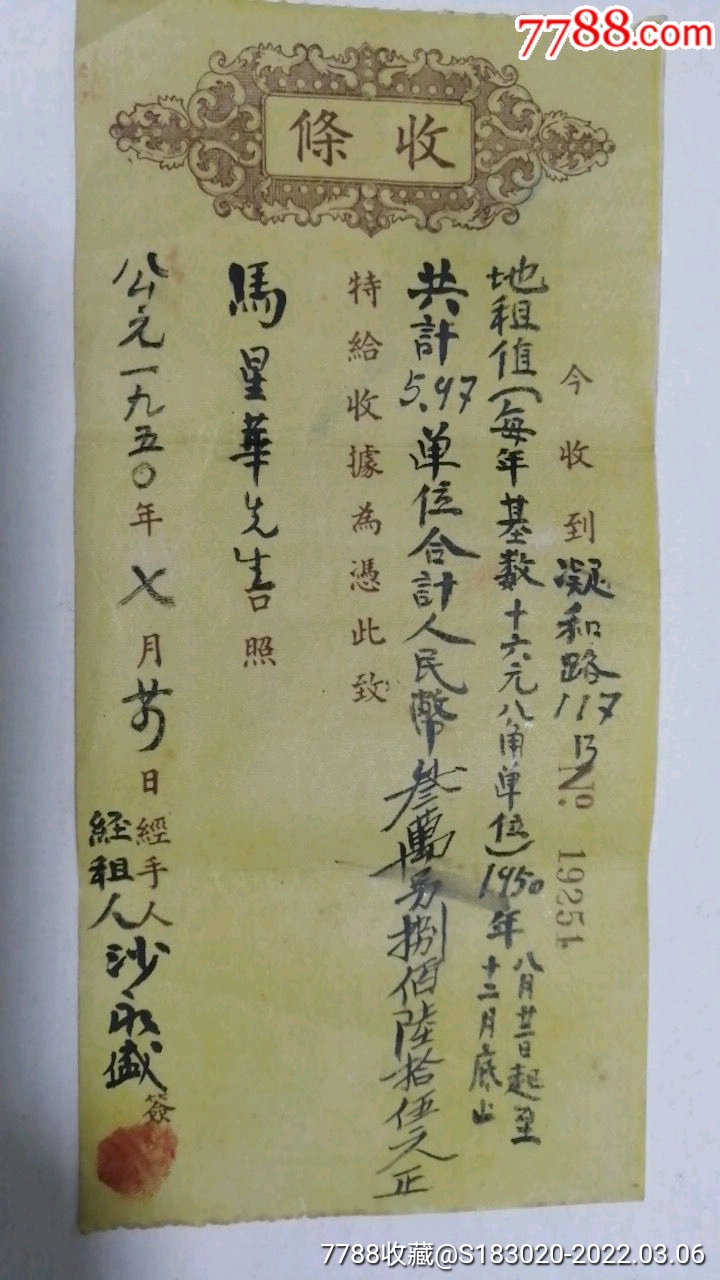 7788.com
收條
今收到凝和路117号
No. 19251
地租值(每年基数十六元八角單位)1950年八月廿二日起至十二月底止
共計5.97單位合計人民幣叁萬另捌佰陸拾伍元正
特給收據為憑此致
馬星華先生台照
公元一九五〇年七月廿 日
經手人
経租人沙永盛簽
7788收藏@S183020-2022.03.06